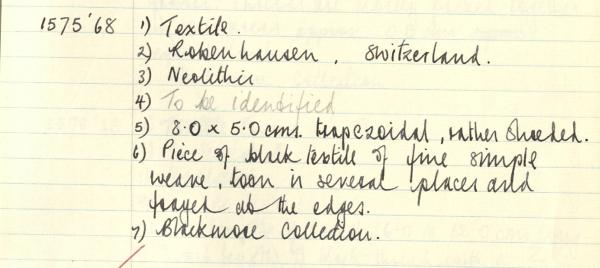 1575'68 1) Textile.
2) Robenhausen, Switzerland.
3) Neolithic
4) To be identified
5) 8.0 x 5.0 cms. trapezoidal, rather shredded.
6) Piece of black textile of fine simple
weave, torn in several places and
frayed at the edges.
7) Blackmore Collection.